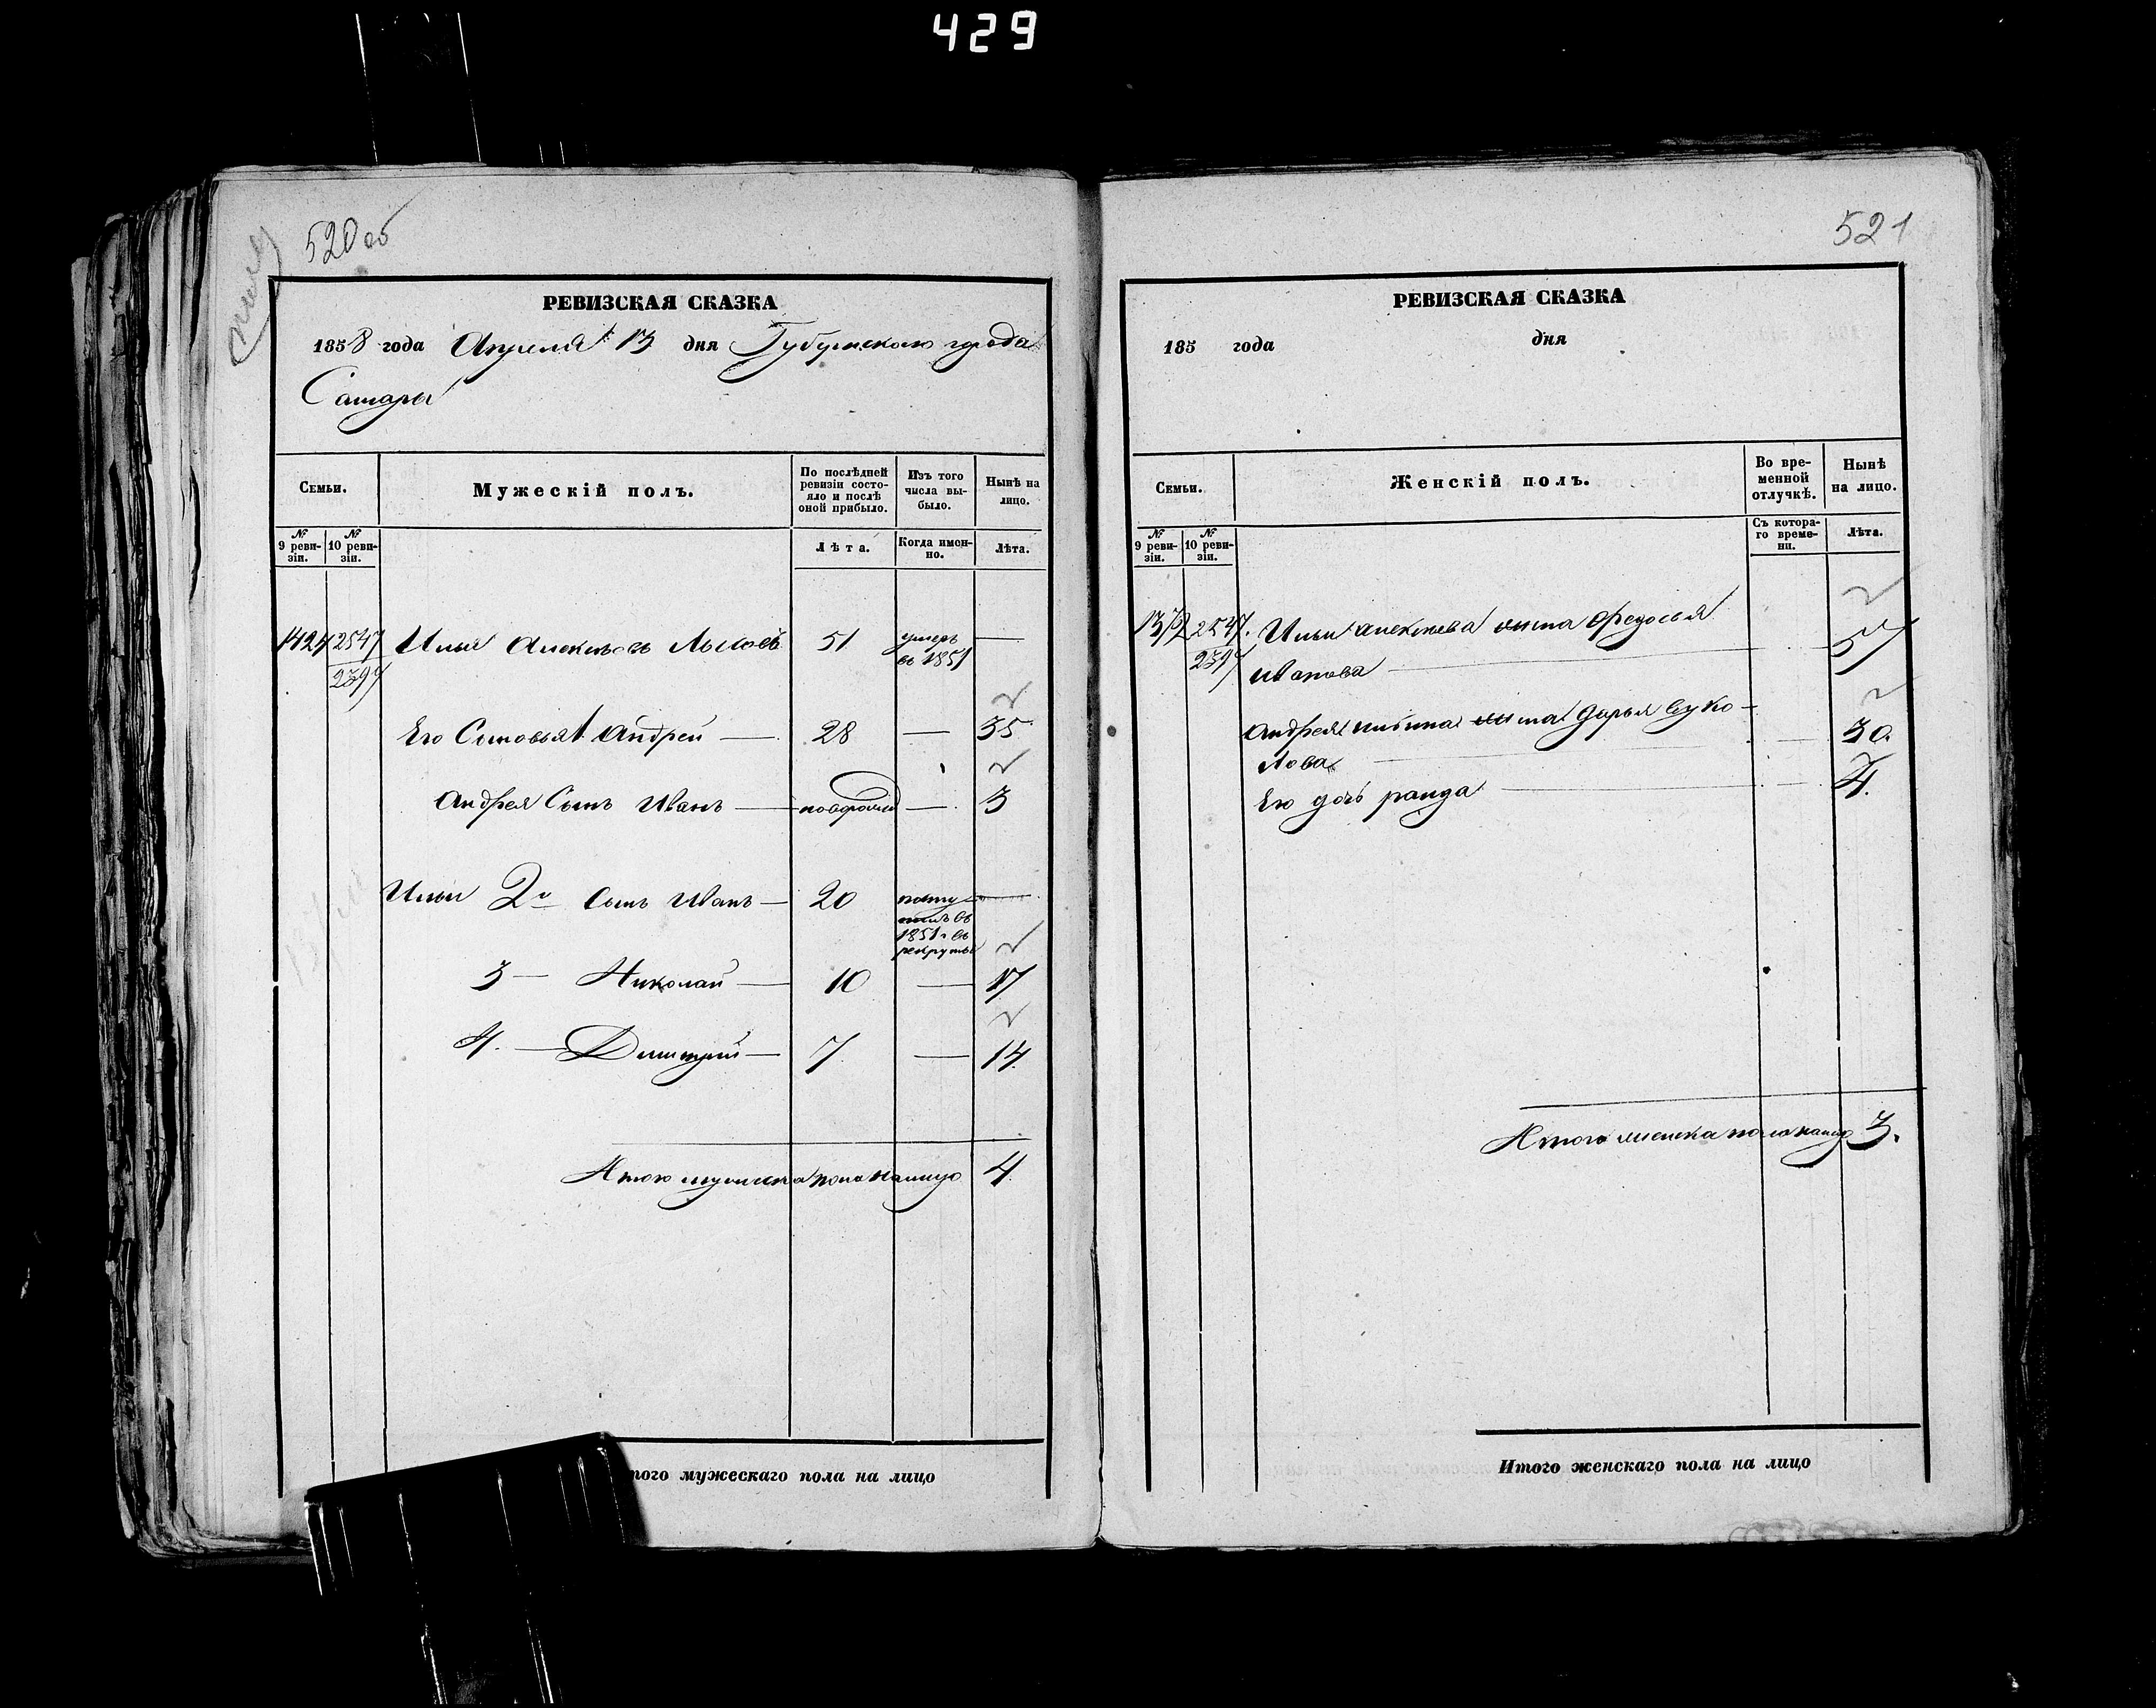 429
520об
РЕВИЗСКАЯ СКАЗКА
1858 года Апреля 13 дня Губернского города
Самары
Семьи.
Мужескій полъ.
По послѣдней
ревизіи состо-
яло и послѣ
оной прибыло.
Изъ того
числа вы-
было.
Нынѣ на
лицо.
№
9 реви-
зіи.
№
10 реви-
зіи.
Лѣта.
Когда имен-
но.
Лѣта.
1424 2547 Илья Алексѣевъ Лыковъ 51 умеръ
въ 1851
2397
Его Сыновья 1 Андрей 28 — 35
Андрея Сынъ Иванъ — новорожд — 3
Ильи 2й Сынъ Иванъ — 20 посту
пилъ въ
1851 г въ
рекруты
3 — Николай — 10 — 17
4. — Дмитрий — 7. — 14.
Итого мужеска пола налицо 4.
того мужескаго пола на лицо
521
РЕВИЗСКАЯ СКАЗКА
185 года дня
Семьи.
Женскій полъ.
Во вре-
менной
отлучкѣ.
Нынѣ
на лицо.
№
9 реви-
зіи.
№
10 реви-
зіи.
Съ котора-
го време-
ни.
Лѣта.
2547. Ильи Алексеева жена Федосья
2397 Иванова — 57
Андрея Ильина жена Дарья Вуко-
лова — 30.
Его дочь — 4.
Итого женска пола налицо 3.
Итого женскаго пола на лицо